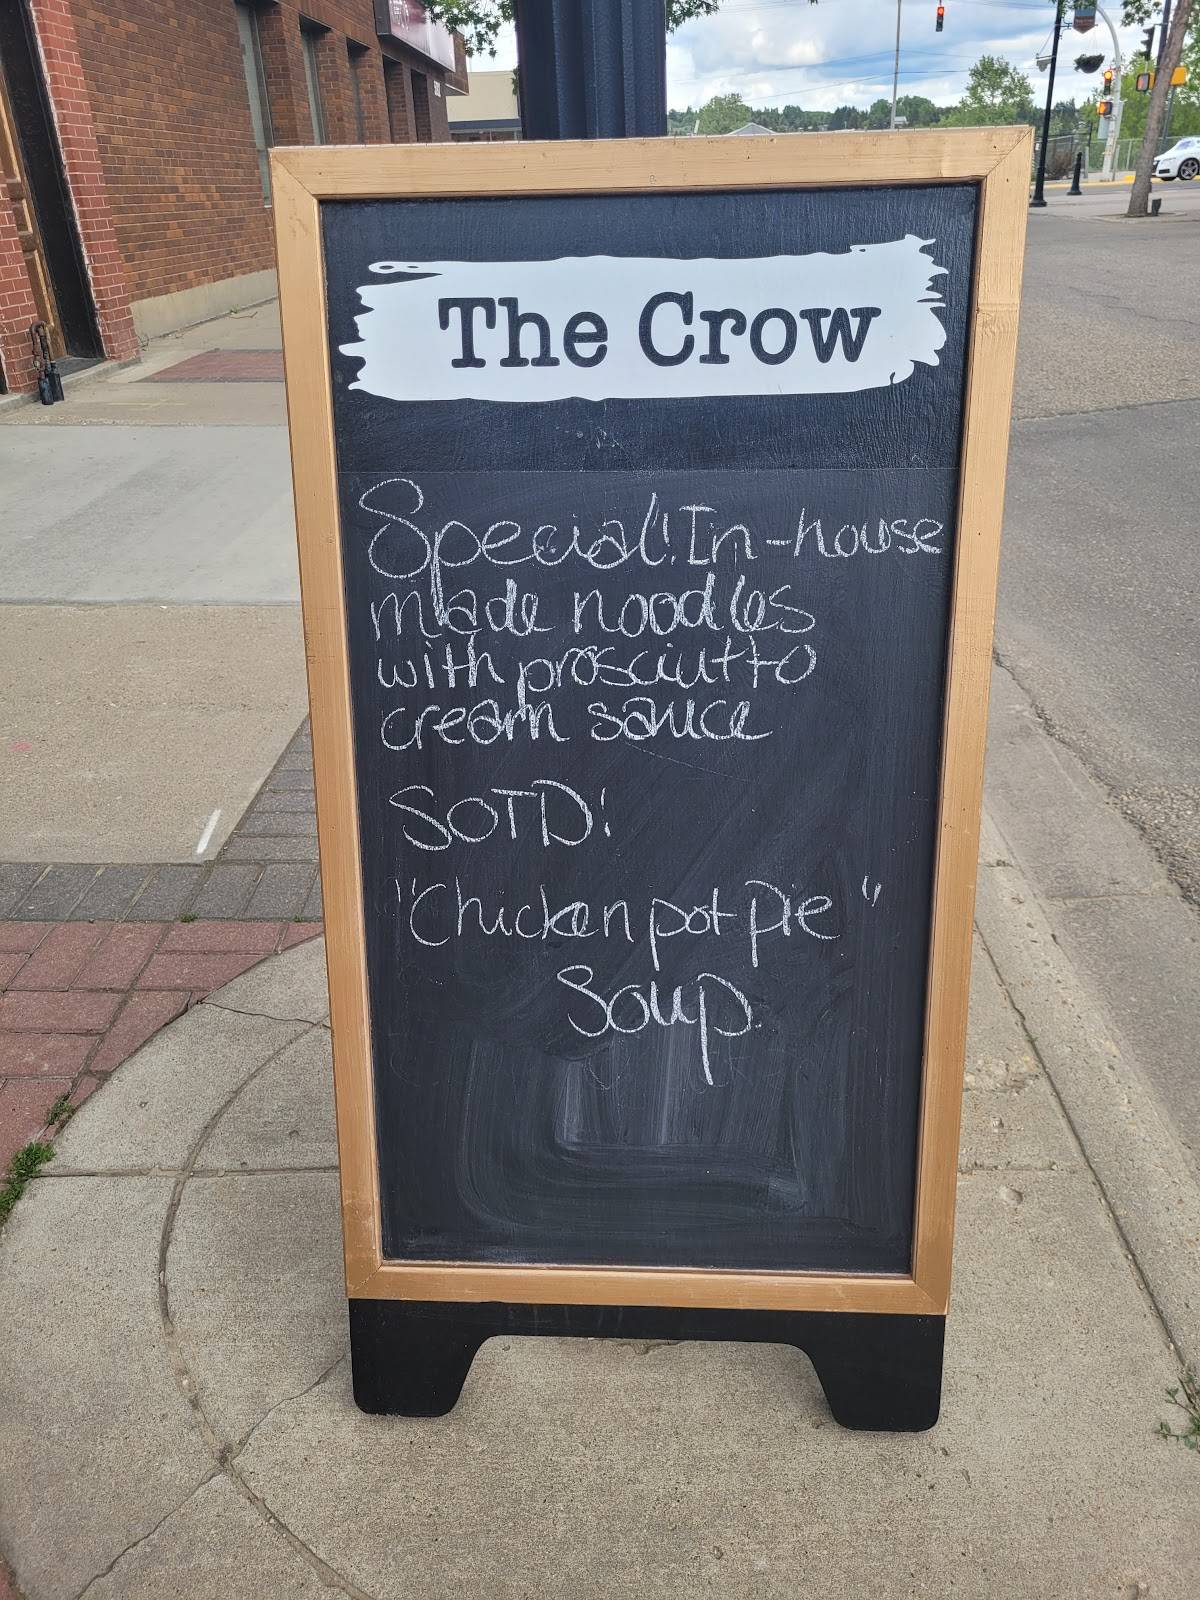 The Crow
Special! In-house
made noodles
with prosciutto
cream sauce
SOTD:
"Chicken pot pie"
Soup